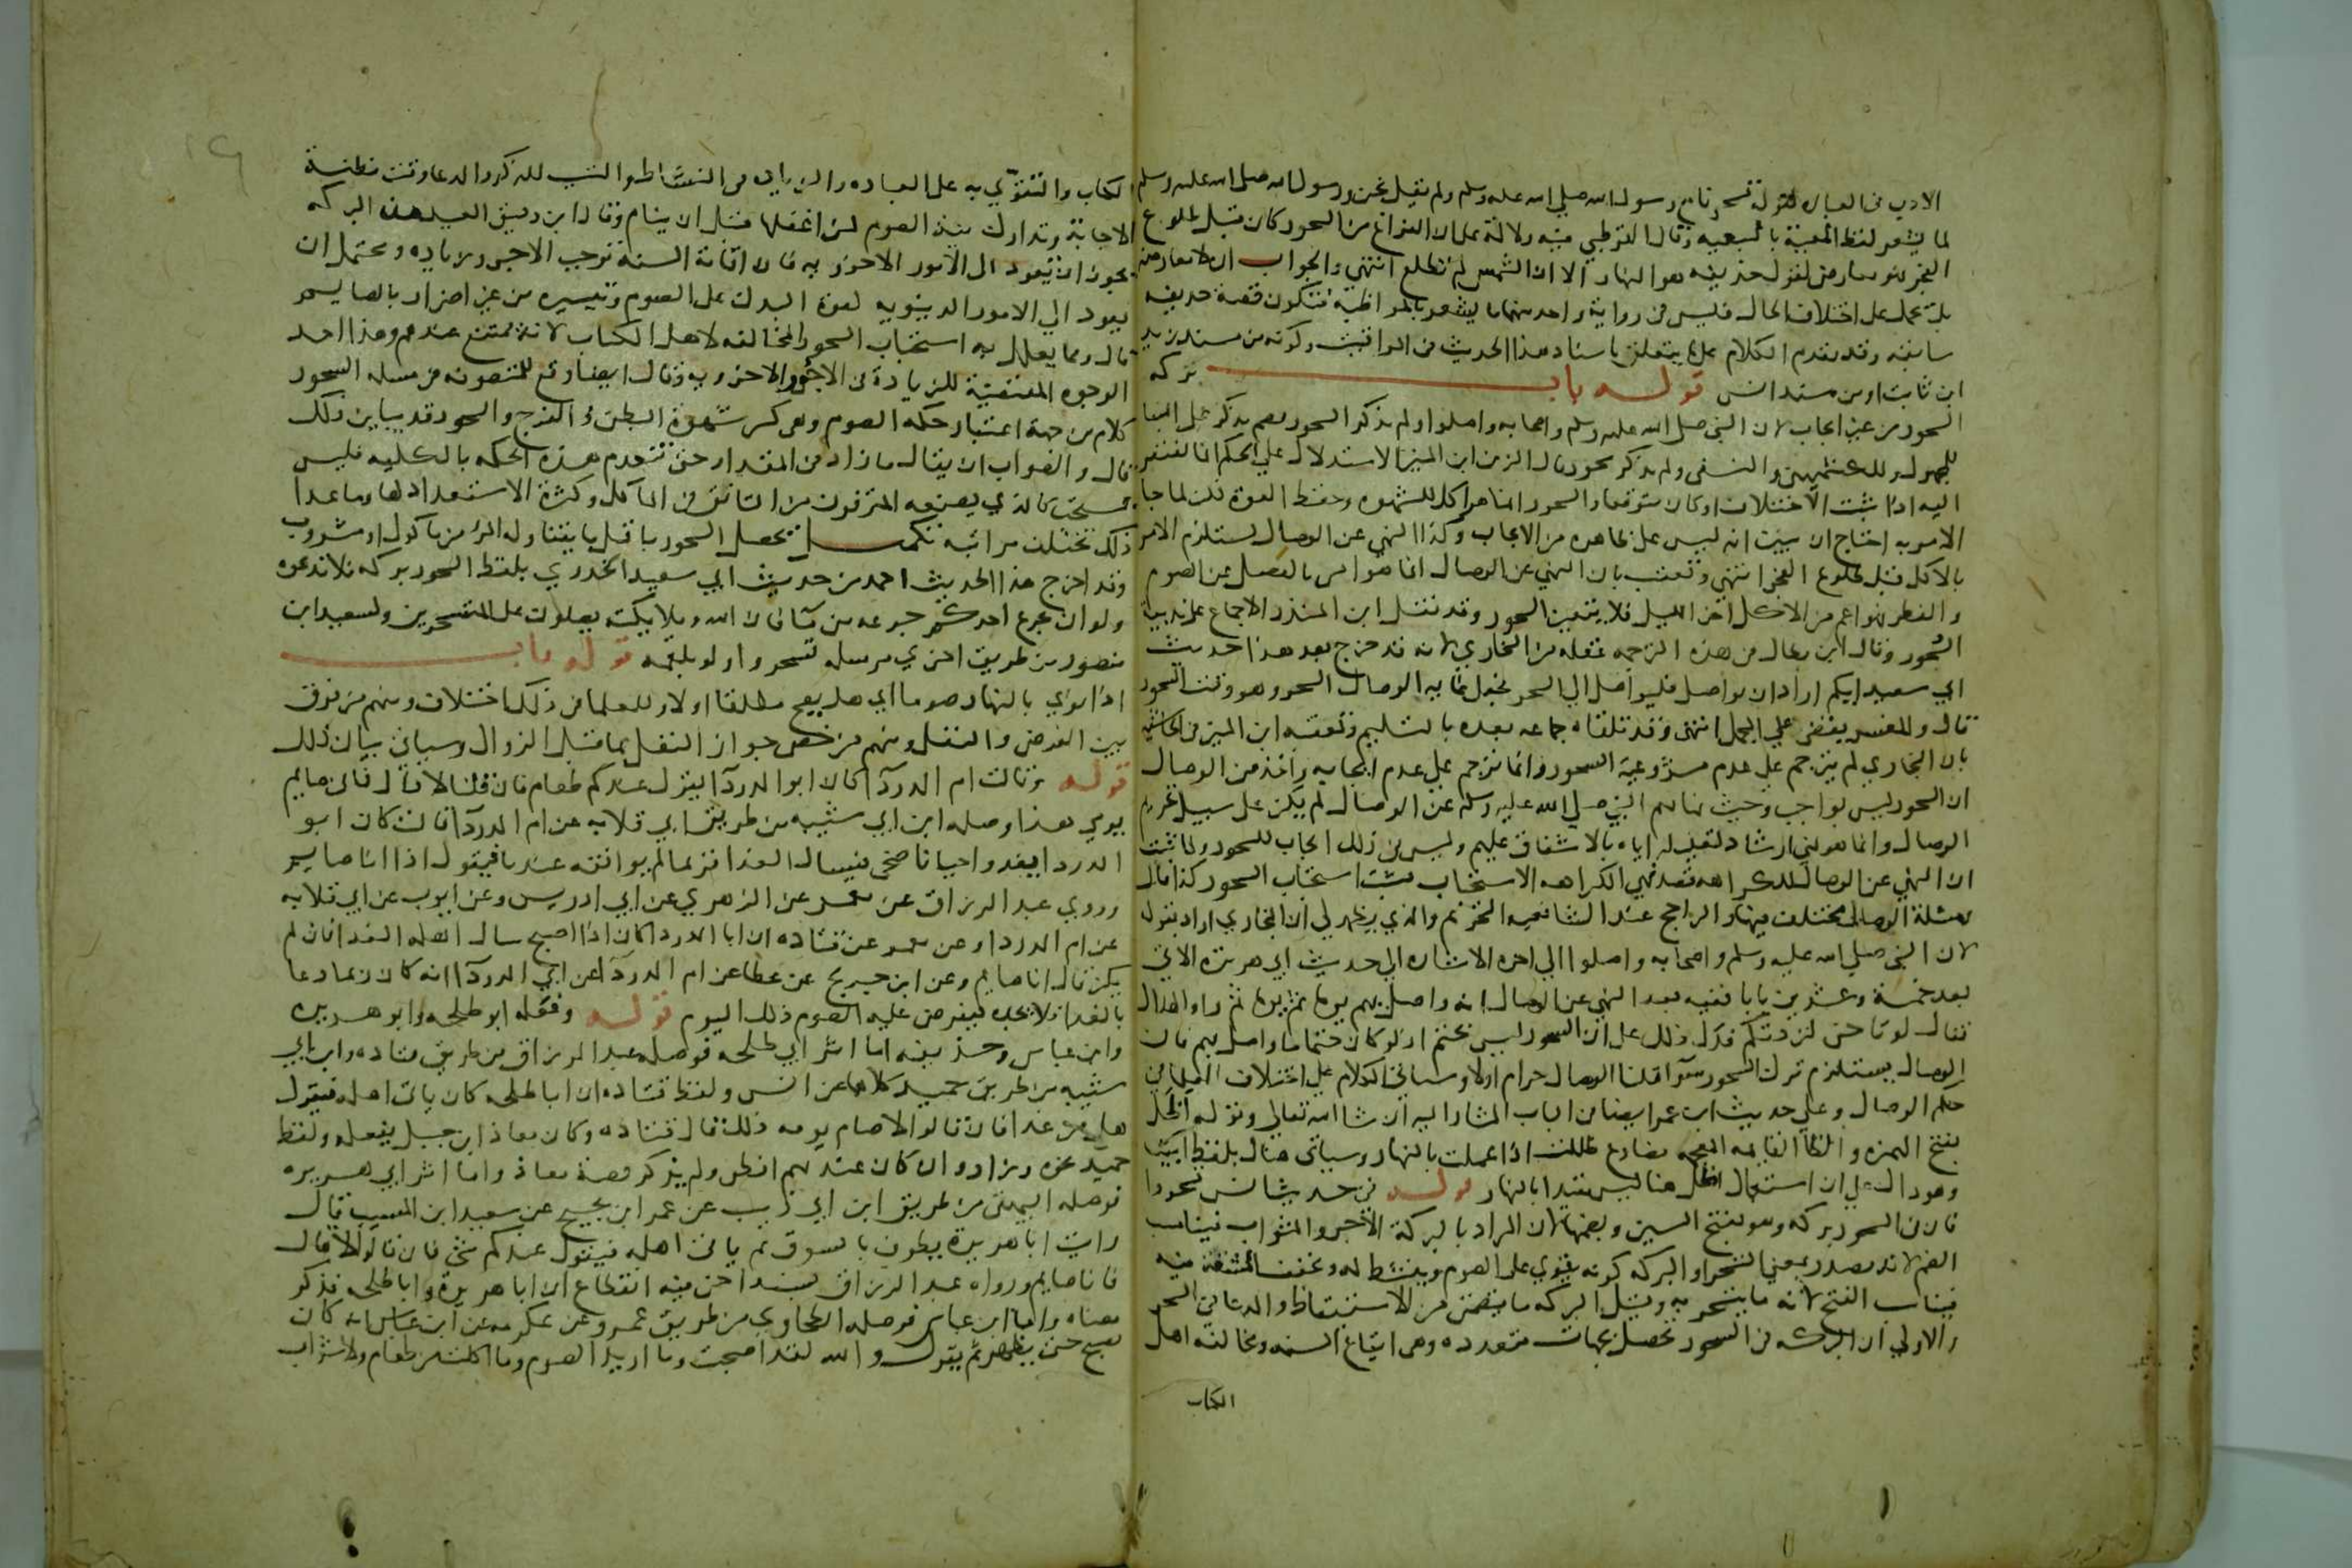 الادب في العبارة لقوله تسحرنا مع رسول الله صلى الله عليه وسلم ولم يقل نحن ورسول الله صلى الله عليه وسلم
لما يشعر لفظ المعية بالتبعيه وقال القرطبي فيه دلالة على ان الفراغ من السحور كان قبل طلوع
الفجر فهو معارض لقول حذيفه هو النهار الا ان الشمس لم تطلع انتهي والجواب ان لا معارضه
بل تحمل على اختلاف الحال فليس في رواية واحد منهما ما يشعر بالمواظبه فتكون قصة حذيفه
سابقه وقد تقدم الكلام على ما يتعلق باسناد هذا الحديث في المواقيت وكونه من مسند زيد
ابن ثابت او من مسند انس قوله باب بركه
السحور من غير ايجاب لان النبي صلى الله عليه وسلم واصحابه واصلوا ولم يذكر السحور بضم يذكر على البنا
للمجهول وللكشميهني والنسفي ولم يذكر سحور قال الزين ابن المنير الاستدلال على الحكم انما يفتقر
اليه اذا ثبت الاختلاف او كان متوقعا والسحور انما هو اكل للشهوه وحفظ القوة لكن لما جا
الامر به احتاج ان يبين انه ليس على ظاهره من الايجاب وكذا النهي عن الوصال يستلزم الامر
بالاكل قبل طلوع الفجر انتهي وتعقب بان النهي عن الوصال انما هو امر بالفصل بين الصوم
والفطر فهو اعم من الاكل اخر الليل فلا يتعين السحور وقد نقل ابن المنذر الاجماع على ندبية
السحور وقال ابن بطال في هذه الترجمه غفله من البخاري لانه قد خرج بعد هذا حديث
ابي سعيد ايكم اراد ان يواصل فليواصل الي السحر فجعل غايه الوصال السحر وهو وقت السحور
قال والمفسر يقضي علي المجمل انتهى وقد تلقاه جماعه بعده بالتسليم وتعقبه ابن المنير في الحاشيه
بان البخاري لم يترجم على عدم مشروعية السحور وانما ترجم على عدم ايجابه واخذ من الوصال
ان السحور ليس بواجب وحيث نهاهم النبي صلى الله عليه وسلم عن الوصال لم يكن على سبيل تحريم
الوصال وانما هو نهي ارشاد لتعليله اياه بالاشفاق عليهم وليس في ذلك ايجاب للسحور ولما ثبت
ان النهي عن الوصال للكراهه فضد نهي الكراهه الاستحباب فثبت استحباب السحور كذا قال
ومسئلة الوصال مختلف فيها والراجح عند الشافعيه التحريم والذي يظهر لي ان البخاري اراد بقوله
لان النبي صلى الله عليه وسلم واصحابه واصلوا الي اخره الاشاره الي حديث ابي هريره الاتي
بعد خمسة وعشرين بابا ففيه بعد النهي عن الوصال انه واصل بهم يوما ثم يوما ثم راوا الهلال
فقال لو تاخر لزدتكم فدل ذلك على ان السحور ليس بحتم اذ لو كان حتما ما واصل بهم فان
الوصال يستلزم ترك السحور سوا قلنا الوصال حرام اولا وسياتي الكلام على اختلاف العلما في
حكم الوصال وعلى حديث ابن عمر ايضا في الباب المشار اليه ان شا الله تعالي وقوله اظل
بفتح الهمزه والظا القايمه المعجمه مضارع ظللت اذا عملت بالنهار وسياتي هناك بلفظ ابيت
وهو دال على ان استعمال اظل هنا ليس مقيدا بالنهار قوله في حديث انس تسحروا
فان في السحور بركه وهو بفتح السين وبضمها لان المراد بالبركة الاجر والثواب فيناسب
الضم لانه مصدر بمعنى التسحر او البركه كونه يقوي على الصوم وينشط له ويخفف المشقة فيه
فيناسب الفتح لانه ما يتسحر به وقيل البركه ما يتضمن من الاستيقاظ والدعا في السحر
والاولي ان البركه في السحور تحصل بجهات متعدده وهي اتباع السنه ومخالفه اهل
الكتاب
الكتاب والتقوّي به على العباده والزياده في النشاط والتسبب للذكر والدعا وقت مظنة
الاجابة وتدارك نية الصوم لمن اغفلها قبل ان ينام وقال ابن دقيق العيد هذه البركه
يجوز ان تعود الى الامور الاخرويه فان اقامة السنة توجب الاجر وزياده ويحتمل ان
تعود الي الامور الدينويه لقوة البدن على الصوم وتيسيره من غير اضرار بالصايم
قال ومما يعلل به استحباب السحور المخالفه لاهل الكتاب لانه ممتنع عندهم وهذا احد
الوجوه المقتضية للزيادة في الاجور الاخرويه وقال ايضا وقع للمتصوفه في مسله السحور
كلام من جهة اعتبار حكم الصوم وهي كسر شهوة البطن والفرج والسحور قد يباين ذلك
قال والصواب ان يقال ما زاد في المقدار حتى تنعدم هذه الحكمه بالكليه فليس
بمستحب كالذي يصنعه المترفون من التانق في الماكل وكثرة الاستعداد لها وما عدا
ذلك تختلف مراتبه تكميل يحصل السحور باقل ما يتناوله المر من ماكول او مشروب
وقد اخرج هذا الحديث احمد من حديث ابي سعيد الخدري بلفظ السحور بركه فلا تدعوه
ولو ان يجرع احدكم جرعه من ما فان الله وملايكته يصلون على المتسحرين ولسعيد ابن
منصور من طريق اخري مرسله تسحروا ولو بلقمه قوله باب
اذا نوي بالنهار صوما اي هل يصح مطلقا اولا وللعلما في ذلك اختلاف ومنهم من فرق
بين الفرض والنفل ومنهم من خص جواز النفل بما قبل الزوال وسياتي بيان ذلك
قوله وقالت ام الدردآ كان ابو الدردآ يقول عندكم طعام فان قلنا لا قال فاني صايم
يومي هذا وصله ابن ابي شيبه من طريق ابي قلابه عن ام الدردآ قالت كان ابو
الدردا يغدو احيانا ضحى فيسال الغدا فربما لم يوافقه عندنا فيقول اذا انا صايم
وروي عبد الرزاق عن معمر عن الزهري عن ابي ادريس وعن ايوب عن ابي قلابه
عن ام الدردا وعن معمر عن قتاده ان ابا الدردا كان اذا اصبح سال اهله الغدا فان لم
يكن قال انا صايم وعن ابن جريج عن عطا عن ام الدردآ عن ابي الدردآ انه كان ربما دعا
بالغدا فلا يجده فيفرض عليه الصوم ذلك اليوم قوله وفعله ابو طلحه وابو هريره
وابن عباس وحذيفه اما اثر ابي طلحه فوصله عبد الرزاق من طريق قتاده وابن ابي
شيبه من طريق حميد كلاهما عن انس ولفظ قتاده ان ابا طلحه كان ياتي اهله فيقول
هل من غدا فان قالوا لا صام يومه ذلك قال قتاده وكان معاذ ابن جبل يفعله ولفظ
حميد نحوه وزاد وان كان عندهم افطر ولم يذكر قصة معاذ واما اثر ابي هريره
فوصله البيهقي من طريق ابن ابي ذيب عن عمر ابن نجيح عن سعيد ابن المسيب قال
رايت ابا هريرة يطوف بالسوق ثم ياتي اهله فيقول عندكم شي فان قالوا لا قال
فانا صايم ورواه عبد الرزاق بسند اخر فيه انقطاع ان ابا هريرة وابا طلحه فذكر
معناه واما ابن عباس فوصله الطحاوي من طريق عمرو عن عكرمه عن ابن عباس انه كان
يصبح حتى يظهر ثم يقول والله لقد اصبحت وما اريد الصوم وما اكلت من طعام ولا شراب